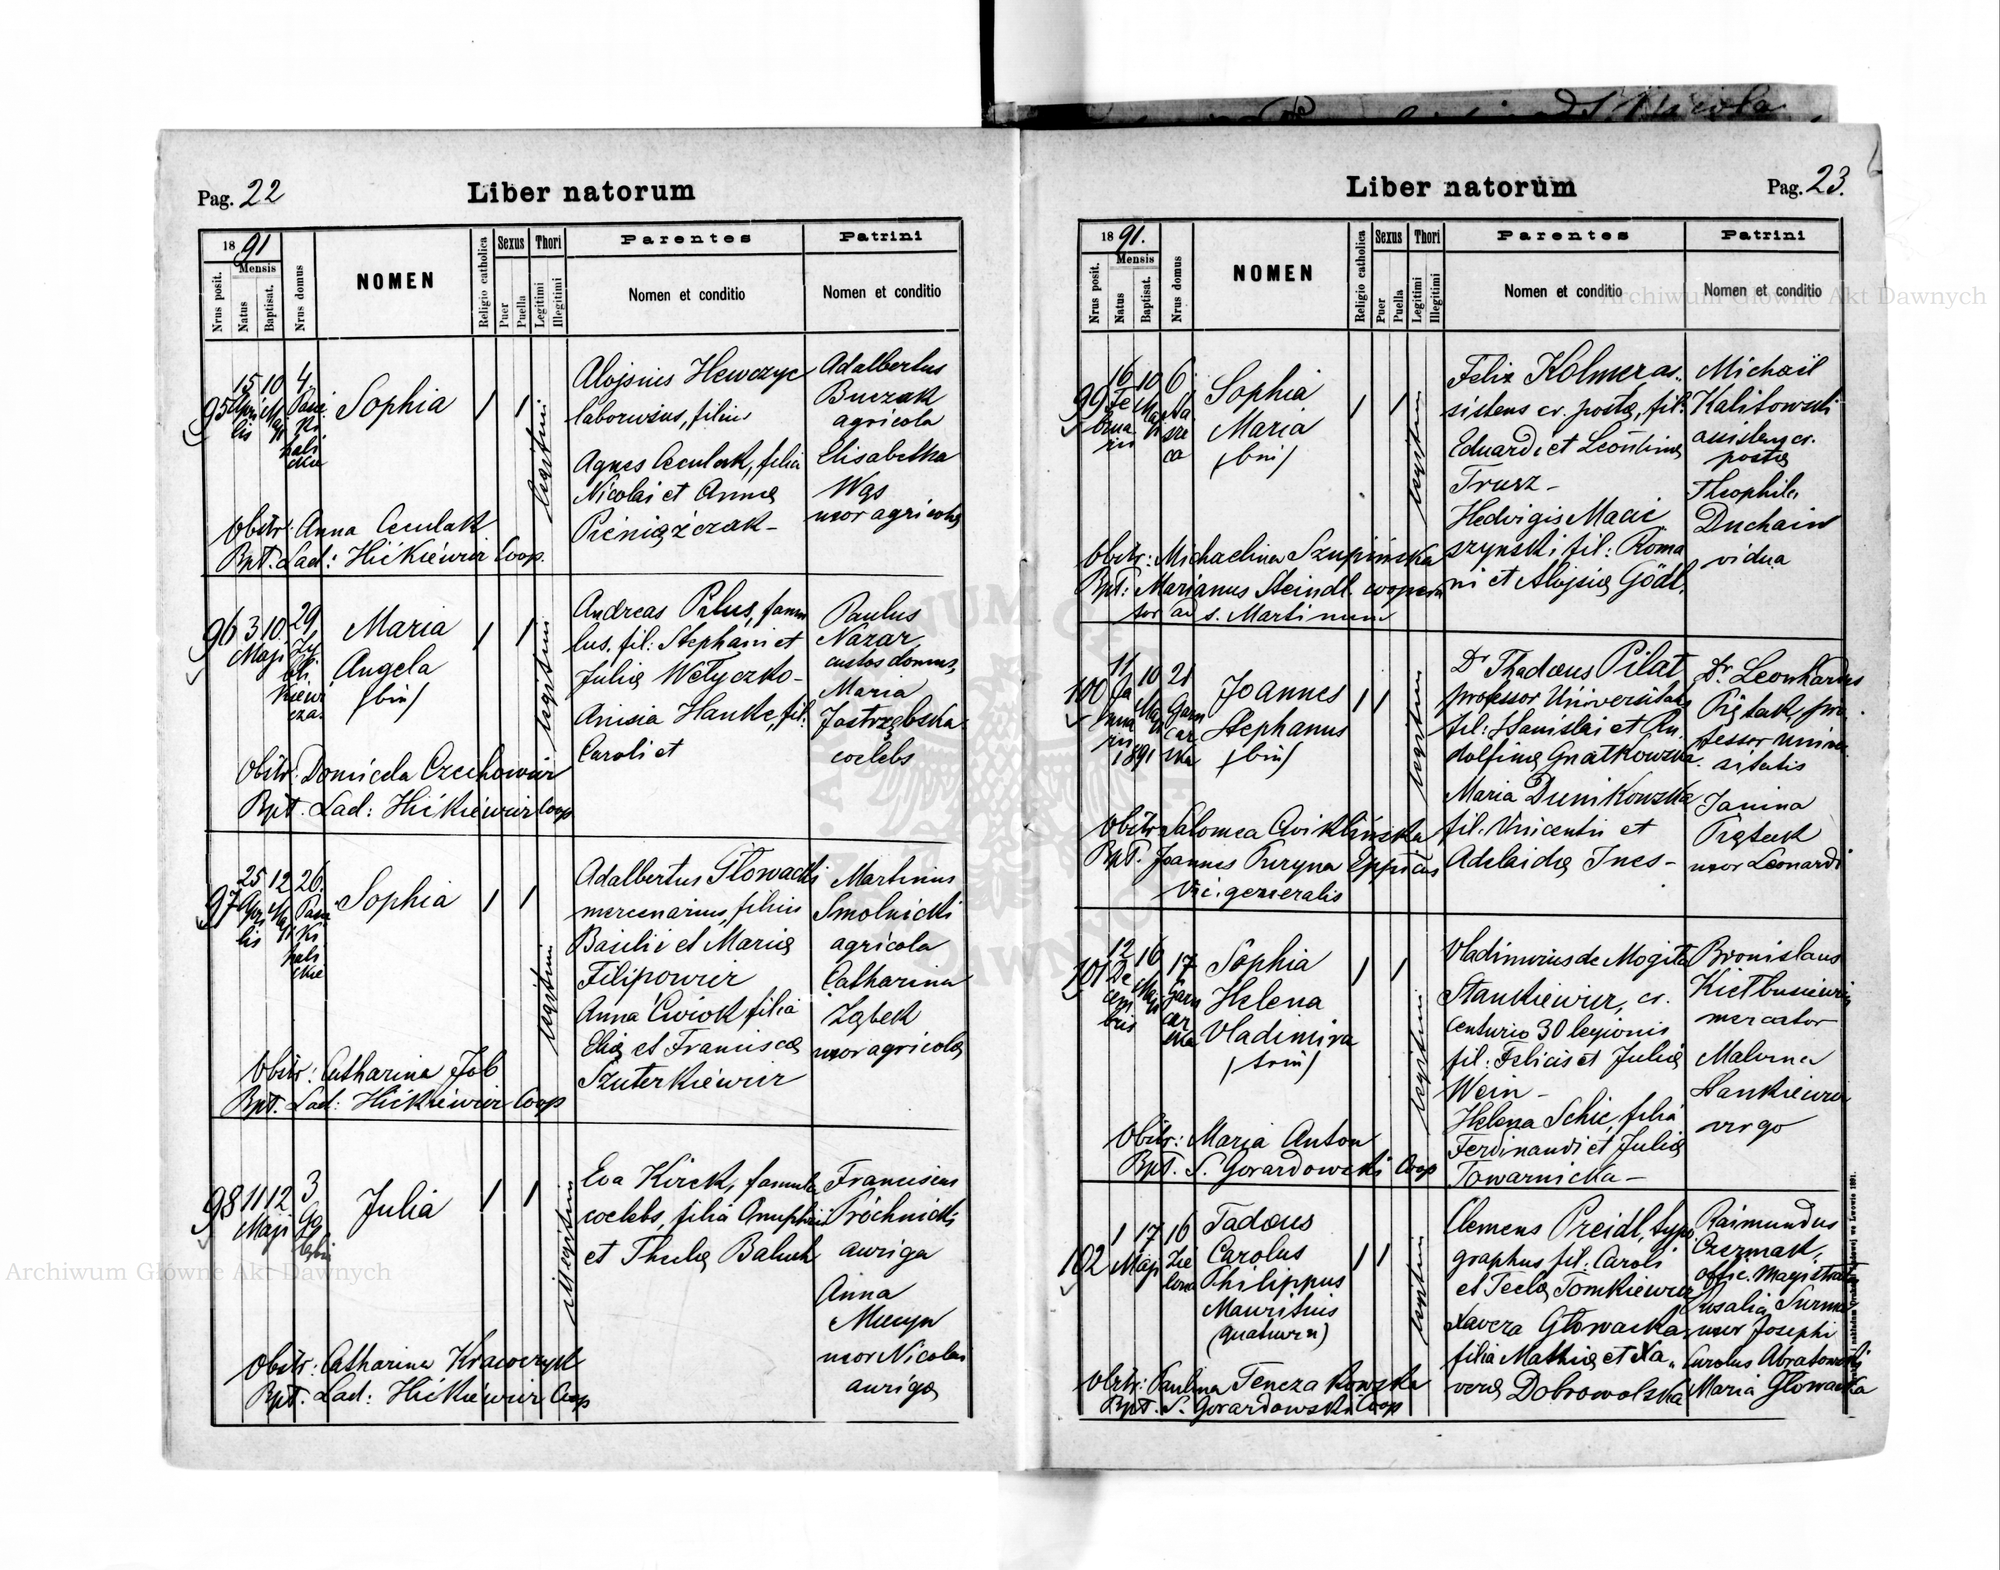 Pag. 22
Liber natorum
1891
Mensis
Nrus posit.
Natus
Baptisat.
Nrus domus
NOMEN
Religio catholica
Sexus
Puer
Puella
Thori
Legitimi
Illegitimi
Parentes
Nomen et conditio
Patrini
Nomen et conditio
95
15
Aprilis
10
4
Sophia
1
1
legitimi
Alojsius Hewczyc
laborwius, filius
Agnes Ceculak, filia
Nicolai et Annae
Pieniążczak-
Adalbertus
Buczak
agricola
Elisabetha
Wąs
uxor agricolae
Obstr: Anna Ceculak
Bpt. Lad: Hićkiéwicz Coop.
96
3
Maji
10.
29
Maria
Angela
(bin)
1
1
legitimi
Andreas Palus, famu
lus, fil: Stephani et
Julia Wełyczko-
Anisia Hanke, fil:
Caroli et
Paulus
Nazar
custos domus,
Maria
Jastrzębska
coelebs
Obstr: Domicela Czechowicz
Bpt. Lad: Hićkiéwicz Coop
97
25
Aprilis
12
26.
Sophia
1
1
legitimi
Adalbertus Głowacki
mercenarius, filius
Basilii et Mariae
Filipowicz
Anna Ćwiok filia
Eliae et Franciscae
Szuterkiéwicz
Martinus
Smolnicki
agricola
Catharina
Ząbek
uxor agricolae
Obstr: Catharina Job
Bpt. Lad: Hićkiéwicz Coop
98
11
Maji
12
3
Julia
1
1
illegitimi
Eva Kirek, famula
coelebs, filia Onuphrii
et Theklae Baluch
Franciscus
Próchnicki
auriga
Anna
uxor Nicolai
aurigae
Obstr: Catharina Krawczyk
Bpt. Lad: Hićkiéwicz Coop
Liber natorum
Pag. 23.
1891.
Mensis
Nrus posit.
Natus
Baptisat.
Nrus domus
NOMEN
Religio catholica
Sexus
Puer
Puella
Thori
Legitimi
Illegitimi
Parentes
Nomen et conditio
Patrini
Nomen et conditio
99
16
Februarii
10
Maji
6
Sophia
Maria
(bin)
1
1
legitimi
Felix Kolmer as„
sistens cr. postae, fil:
Eduardi et Leontinae
Trusz-
Hedvigis Macie
szynski, fil: Roma
ni et Alojsiae Gödl.
Michaël
Kalitowski
assistens cr.
postae
Theophila
Duchain
vidua
Obstr: Michaelina Szupinska
Bpt: Marianus Steindl. coopera
tor ad s. Martinum
100
11
Januarii
1891
10
Maji
21
Garncarska
Joannes
Stephanus
(bin)
1
1
legitimi
Dr Thadaeus Pilat
professor Universitatis
fil: Stanislai et Ru„
dolfinae Gnatkowska.
Maria Dunikowska
fil. Vincentii et
Adelaidae Ines-
Dr. Leonhardus
Piętak, pro
fessor Univer
sitatis
Janina
Piętak
uxor Leonardi
Obstr. Salomea Cwiklińska
Bpt. Joannes Puzyna Eppicus
Vic: generalis
101
12
Decembris
16
Maji
17
Garncarska
Sophia
Helena
Vladimira
(trin)
1
1
legitimi
Vladimirus de Mogiła
Stankiewicz, cr.
centurio 30 legionis
fil: Felicis et Juliae
Wein-
Helena Schie, filia
Ferdinandi et Juliae
Towarnicka-
Bronislaus
Kiełbusiewicz
mercator
Malvina
Stankiewicz
virgo
Obstr: Maria Anton
Bpt. S. Gorardowski Coop
102
1
Maji
17
16
Zielona
Tadeus
Carolus
Philippus
Mauritius
(quatuorn)
1
1
legitimi
Clemens Preidl, typo
graphus fil: Caroli
et Teclae Tomkiewicz
Xavera Głowacka
filia Mathiae et Xa„
verae Dobrowolska
Raimundus
Czezmak,
offic. Magistrat
uxor Josephi
Carolus Abratowski
Maria Głowacka
Obstr: Paulina Tenczakowska
Bpt. S. Gorardowski Coop
Archiwum Główne Akt Dawnych
Archiwum Główne Akt Dawnych